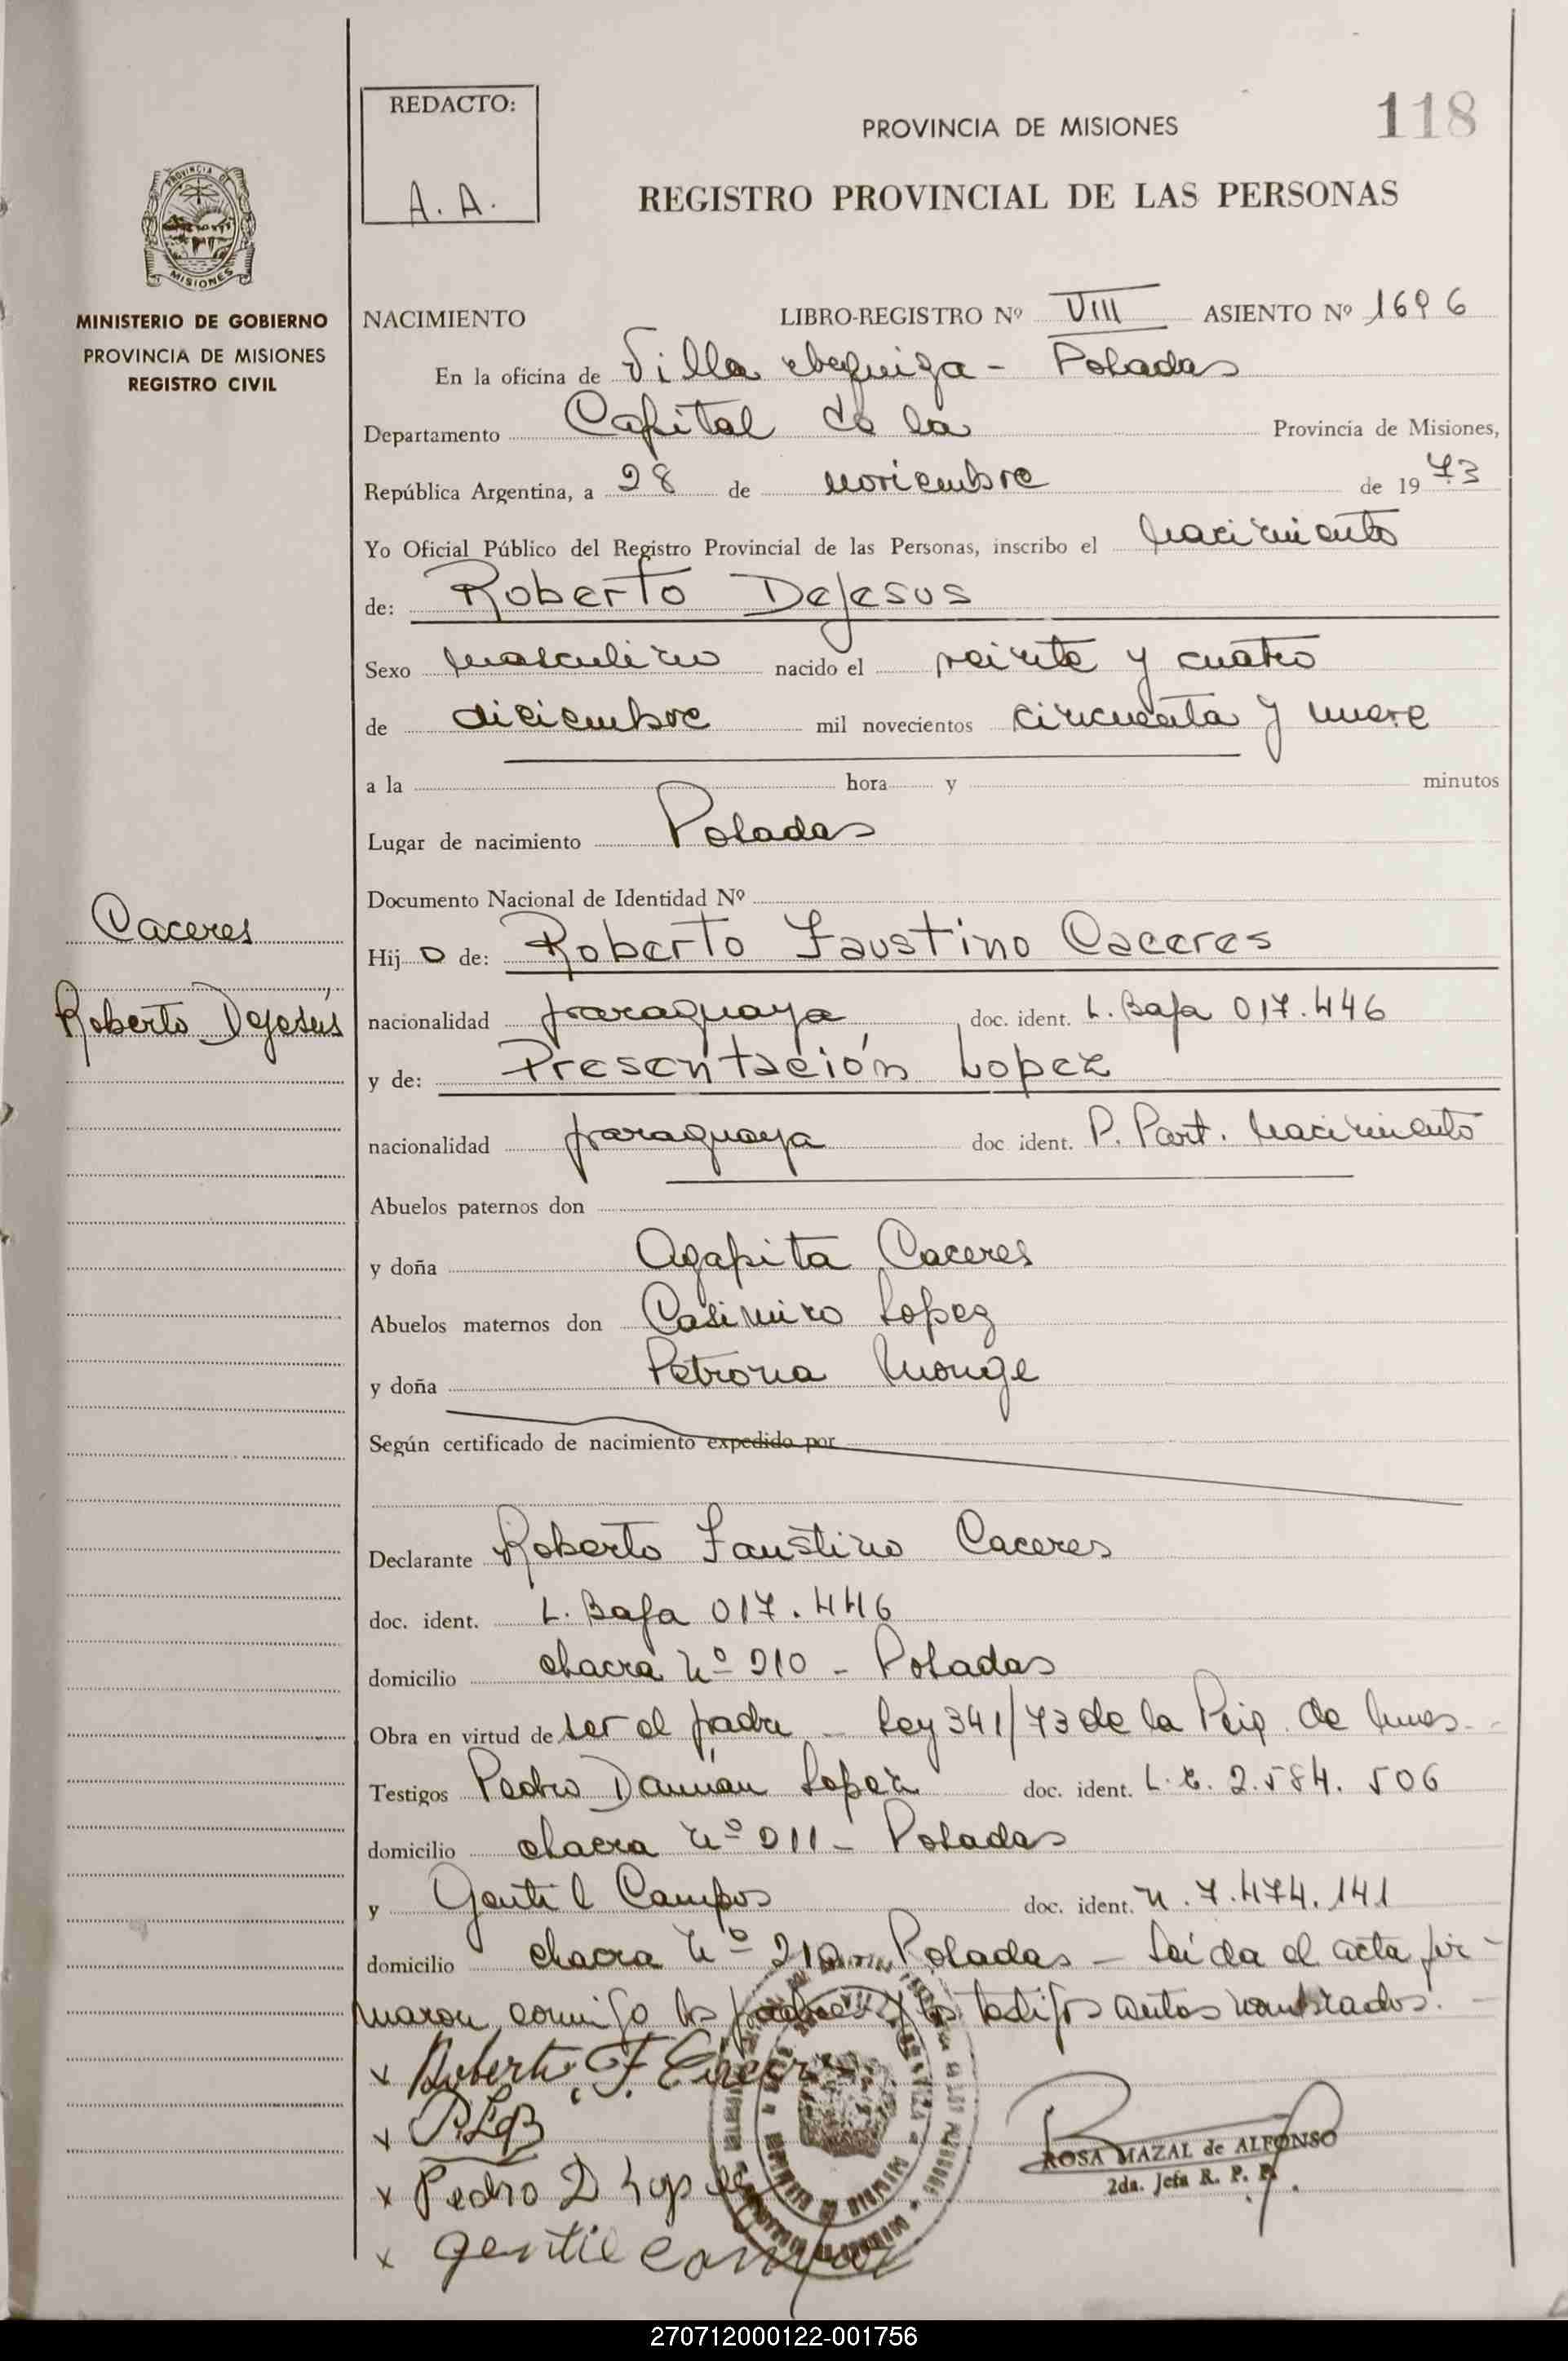 REDACTO:
A. A.
PROVINCIA DE MISIONES
118
REGISTRO PROVINCIAL DE LAS PERSONAS
PROVINCIA DE
MISIONES
MINISTERIO DE GOBIERNO
PROVINCIA DE MISIONES
REGISTRO CIVIL
NACIMIENTO LIBRO-REGISTRO Nº VIII ASIENTO Nº 1696
En la oficina de Villa - Posadas
Departamento Capital de la Provincia de Misiones,
República Argentina, a 28 de noviembre de 1973
Yo Oficial Público del Registro Provincial de las Personas, inscribo el nacimiento
de: Roberto Dejesus
Sexo masculino nacido el veinte y cuatro
de diciembre mil novecientos cincuenta y nueve
a la hora y minutos
Lugar de nacimiento Posadas
Documento Nacional de Identidad Nº
Caceres
Hijo de: Roberto Faustino Caceres
Roberto Dejesús
nacionalidad paraguaya doc. ident. L. Baja 017.446
y de: Presentación Lopez
nacionalidad paraguaya doc ident. P. Part. Nacimiento
Abuelos paternos don
y doña Agapita Caceres
Abuelos maternos don Casimiro Lopez
y doña Petrona Monge
Según certificado de nacimiento expedido por
Declarante Roberto Faustino Caceres
doc. ident. L. Baja 017.446
domicilio chacra Nº 210 - Posadas
Obra en virtud de ser el padre - Ley 341/73 de la Pcia. de Mnes.-
Testigos Pedro Damián Lopez doc. ident. L.E. 2.584.506
domicilio chacra Nº 211 - Posadas
y Gentil Campos doc. ident. N. 7.474.141
domicilio chacra Nº 210 - Posadas - Leída el acta fir-
maron conmigo los padres y los testigos antes nombrados. -
x Roberto F. Caceres
x P. L
x Pedro D Lopez
x gentil campos
ROSA MAZAL de ALFONSO
2da. Jefa R. P. P.
270712000122-001756